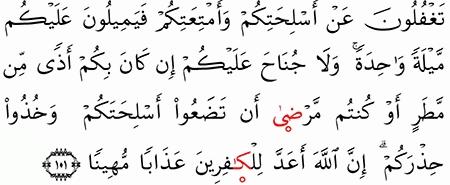 تَغْفُلُونَ عَنْ أَسْلِحَتِكُمْ وَأَمْتِعَتِكُمْ فَيَمِيلُونَ عَلَيْكُم
مَّيْلَةً وَاحِدَةً ۚ وَلَا جُنَاحَ عَلَيْكُمْ إِن كَانَ بِكُمْ أَذًى مِّن
مَّطَرٍ أَوْ كُنتُم مَّرْضَىٰ أَن تَضَعُوا أَسْلِحَتَكُمْ وَخُذُوا
حِذْرَكُمْ ۗ إِنَّ اللَّهَ أَعَدَّ لِلْكَافِرِينَ عَذَابًا مُّهِينًا ﴿١٠١﴾